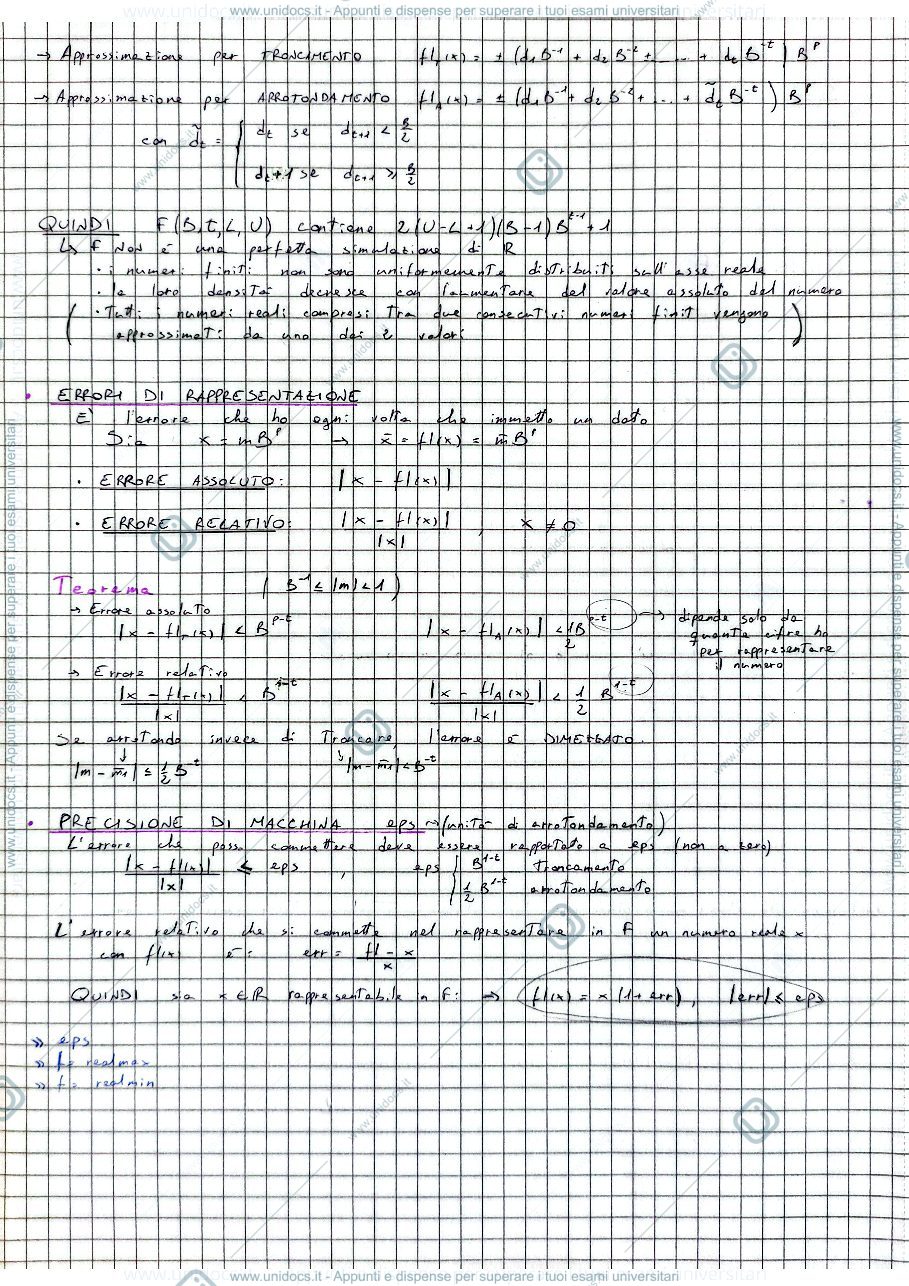 www.unidocs.it - Appunti e dispense per superare i tuoi esami universitari
→ Approssimazione per TRONCAMENTO fl_T(x) = ± (d₁B⁻¹ + d₂B⁻² + .... + d_t B^-t) B^p
→ Approssimazione per ARROTONDAMENTO fl_A(x) = ± (d₁B⁻¹ + d₂B⁻² + ... + d̃_t B^-t) B^p
con d̃_t = { d_t se d_t+1 < B/2
d_t+1 se d_t+1 ⩾ B/2
QUINDI F(B,t,L,U) contiene 2(U-L+1)(B-1)B^t-1 + 1
↳ F NON è una perfetta simulazione di ℝ
• i numeri finiti non sono uniformemente distribuiti sull'asse reale
• la loro densità decresce con l'aumentare del valore assoluto del numero
( • Tutti i numeri reali compresi tra due consecutivi numeri finit vengono
approssimati da uno dei 2 valori )
• ERRORI DI RAPPRESENTAZIONE
E' l'errore che ho ogni volta che immetto un dato
Sia x = mB^p → x̄ = fl(x) = m̄B^p
• ERRORE ASSOLUTO: |x - fl(x)|
• ERRORE RELATIVO: |x - fl(x)| / |x| , x ≠ 0
Teorema ( B⁻¹ ≤ |m| < 1 )
→ Errore assoluto
|x - fl_T(x)| < B^p-t |x - fl_A(x)| < 1/2 B^p-t → dipende solo da
quante cifre ho
per rappresentare
il numero
→ Errore relativo
|x - fl_T(x)| / |x| < B^1-t |x - fl_A(x)| / |x| < 1/2 B^1-t
Se arrotondo invece di Troncare, l'errore è DIMEZZATO.
|m - m̄| ≤ 1/2 B^-t |m - m̄| < B^-t
• PRECISIONE DI MACCHINA eps → (unità di arrotondamento)
L'errore che posso commettere deve essere rapportato a eps (non a zero)
|x - fl(x)| / |x| ≤ eps , eps { B^1-t Troncamento
1/2 B^1-t arrotondamento
L'errore relativo che si commette nel rappresentare in F un numero reale x
con fl(x) è: err = fl - x / x
QUINDI sia x ∈ ℝ rappresentabile in F: → fl(x) = x (1 + err), |err| ≤ eps
>> eps
>> f = realmax
>> f = realmin
www.unidocs.it - Appunti e dispense per superare i tuoi esami universitari